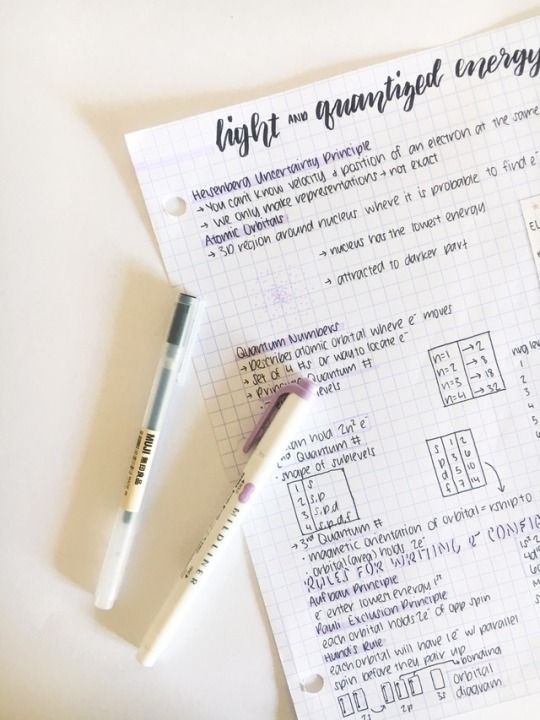 light AND quantized energy
Heisenberg Uncertainty Principle
→ You can't know velocity & position of an electron at the same
→ We only make representations → not exact
Atomic Orbitals
→ 3D region around nucleus where it is probable to find e⁻
→ nucleus has the lowest energy
→ attracted to darker part
Quantum Numbers
→ Describes atomic orbital where e⁻ moves
→ set of 4 #s or way to locate e⁻
→ Principle Quantum #
levels
can hold 2n² e⁻
2nd Quantum #
· shape of sublevels
n=1 → 2
n=2 → 8
n=3 → 18
n=4 → 32
s 1 2
p 3 6
d 5 10
f 7 14
1 s
2 s,p
3 s,p,d
4 s,p,d,f
→ 3rd Quantum #
· magnetic orientation of orbital =
· orbital (area) holds 2e⁻
RULES FOR WRITING e⁻ CONFIG
Aufbau Principle
e⁻ enter lowest energy 1st
Pauli Exclusion Principle
each orbital holds 2e⁻ of opp spin
Hund's Rule
each orbital will have 1e⁻ w/ parallel
spin before they pair up
bonding
orbital
diagram
2s 2p 3s
EL
1
2
3
4
MUJI 無印良品
MILDLINER